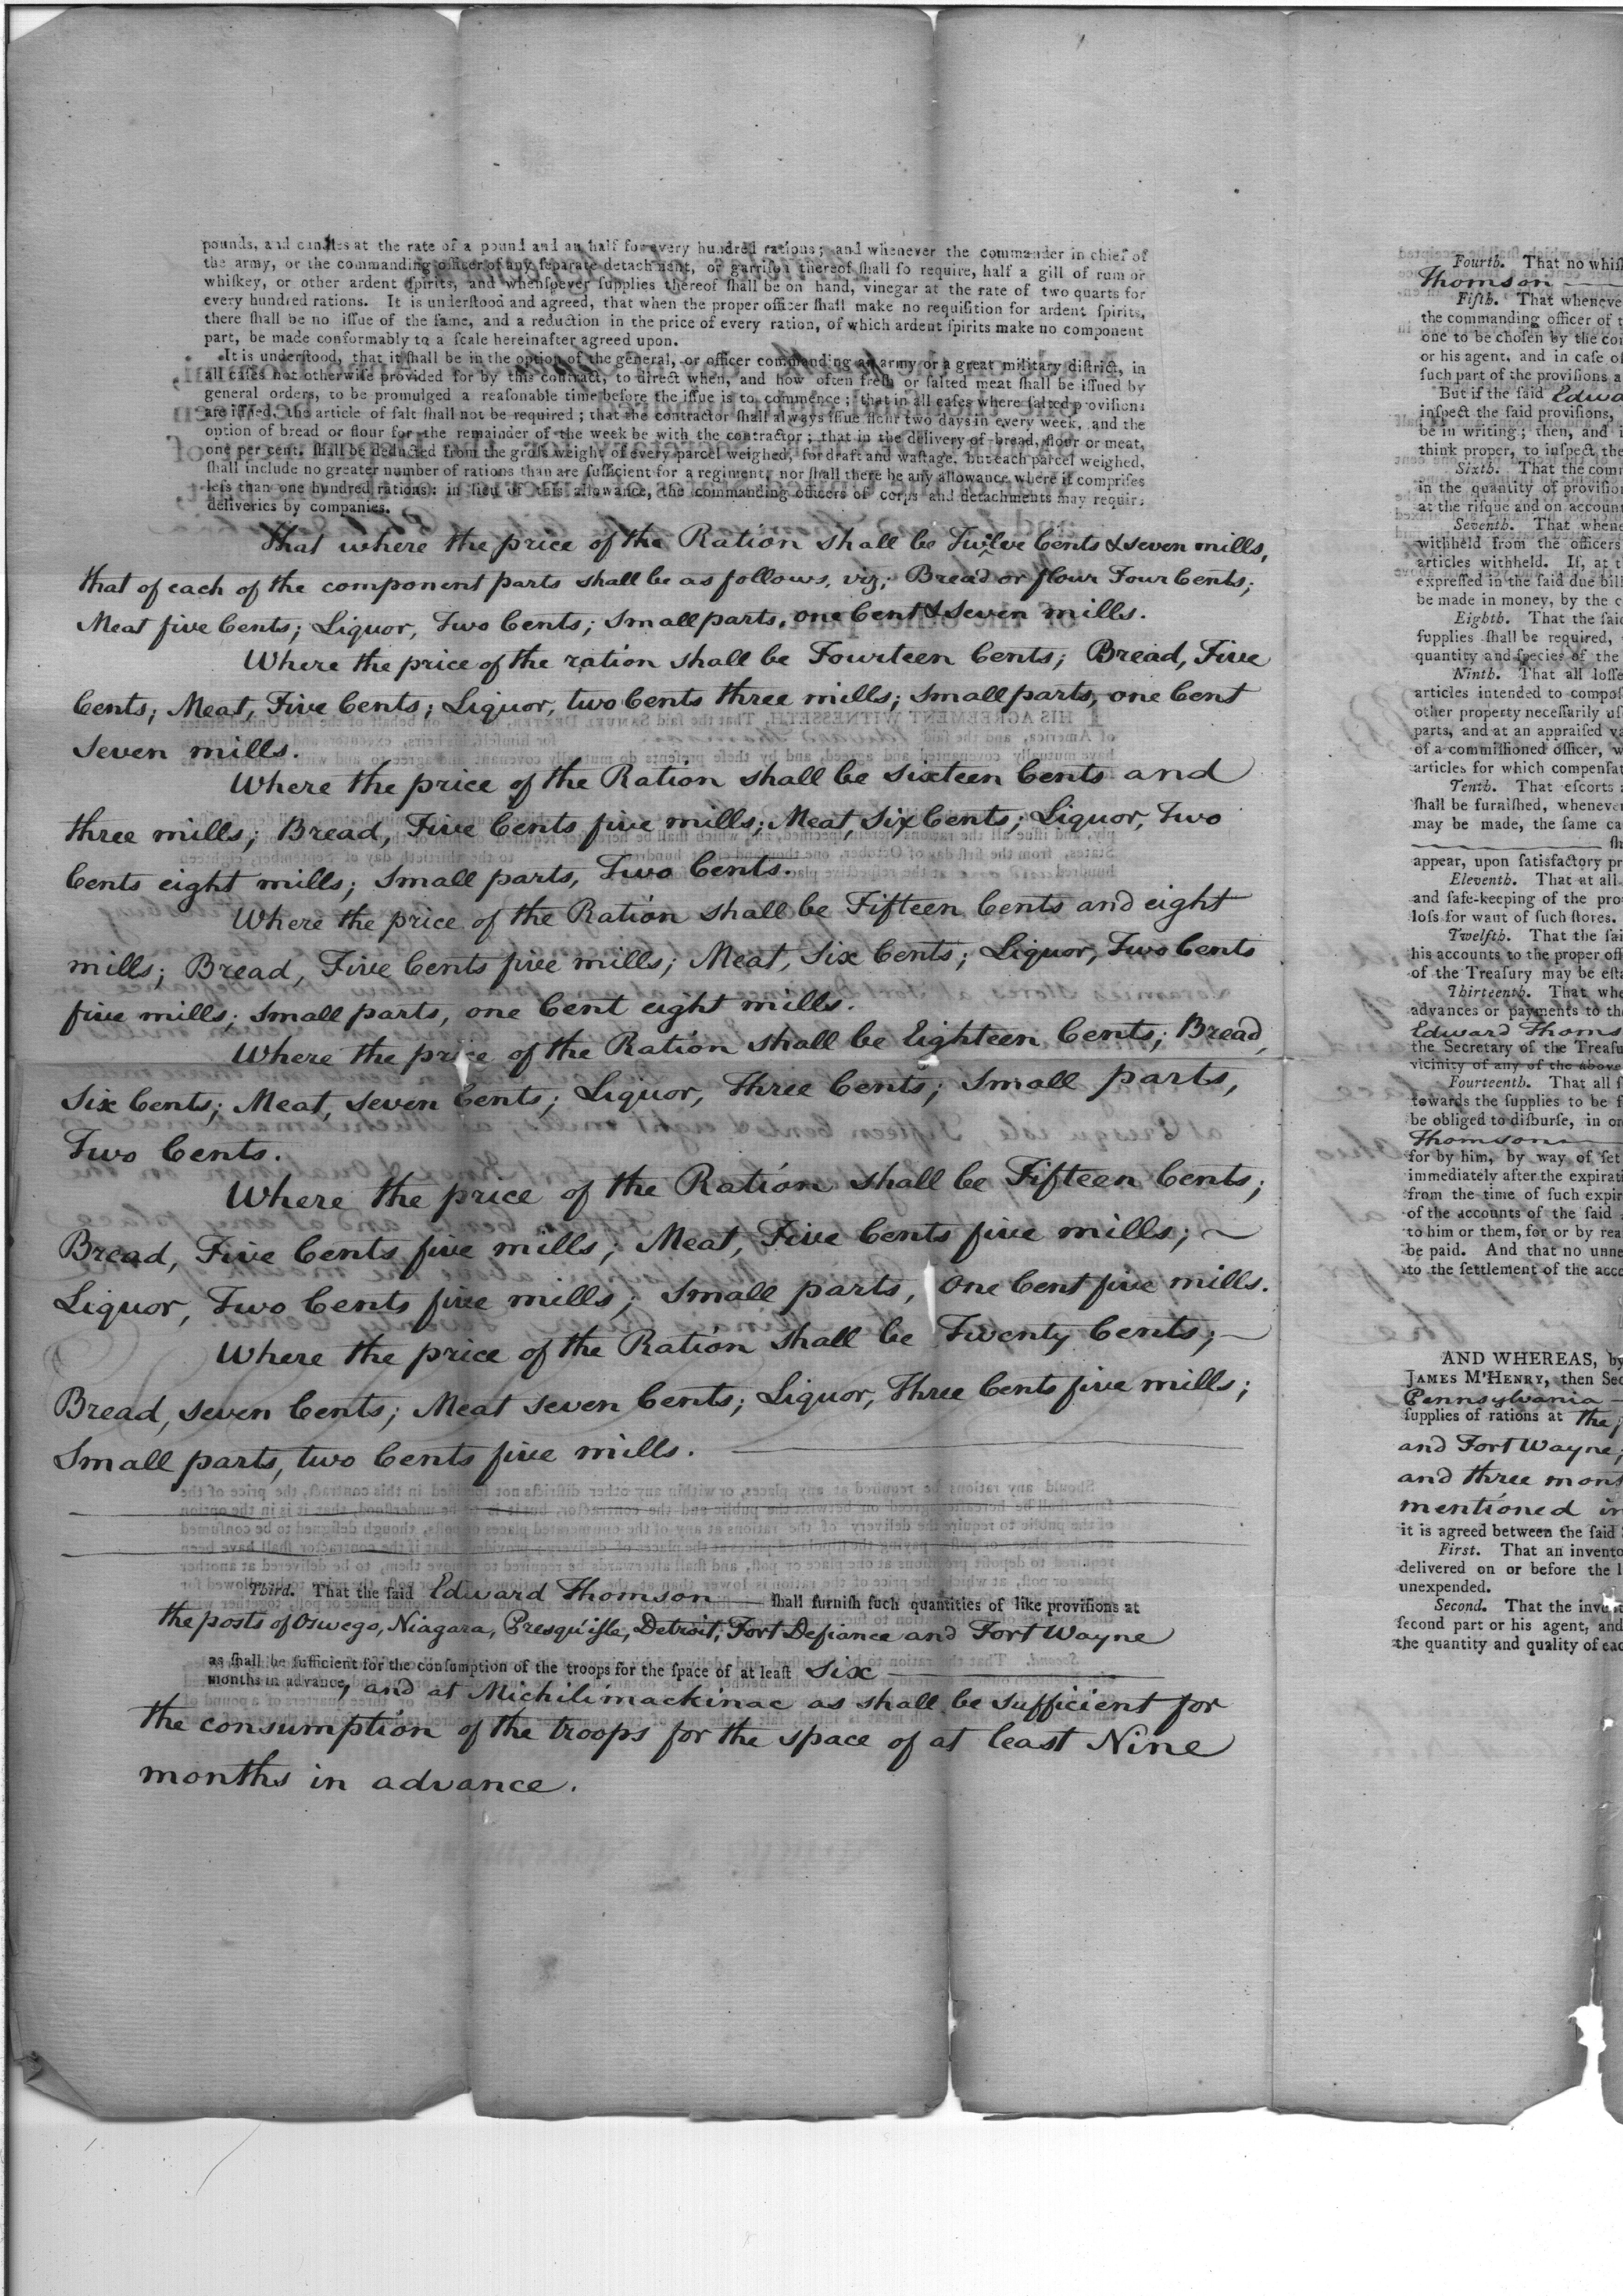 pounds, and candles at the rate of a pound and an half for every hundred rations; and whenever the commander in chief of
the army, or the commanding officer of any ſeparate detachment, or garriſon thereof ſhall ſo require, half a gill of rum or
whiſkey, or other ardent ſpirits, and whenſoever ſupplies thereof ſhall be on hand, vinegar at the rate of two quarts for
every hundred rations. It is underſtood and agreed, that when the proper officer ſhall make no requiſition for ardent ſpirits,
there ſhall be no iſſue of the ſame, and a reduction in the price of every ration, of which ardent ſpirits make no component
part, be made conformably to a ſcale hereinafter agreed upon.
It is underſtood, that it ſhall be in the option of the general, or officer commanding an army or a great military diſtrict, in
all caſes not otherwiſe provided for by this contract, to direct when, and how often freſh or ſalted meat ſhall be iſſued by
general orders, to be promulged a reaſonable time before the iſſue is to commence; that in all caſes where ſalted proviſions
are iſſued, the article of ſalt ſhall not be required; that the contractor ſhall always iſſue flour two days in every week, and the
option of bread or flour for the remainder of the week be with the contractor; that in the delivery of bread, flour or meat,
one per cent. ſhall be deducted from the groſs weight of every parcel weighed, for draft and waſtage, but each parcel weighed,
ſhall include no greater number of rations than are ſufficient for a regiment, nor ſhall there be any allowance where it compriſes
leſs than one hundred rations: in lieu of this allowance, the commanding officers of corps and detachments may require
deliveries by companies.
That where the price of the Ration shall be Twelve Cents & seven mills,
that of each of the component parts shall be as follows, viz; Bread or flour Four Cents;
Meat five Cents; Liquor, Two Cents; Small parts, one Cent & seven mills.
Where the price of the ration shall be Fourteen Cents; Bread, Five
Cents; Meat, Five Cents; Liquor, two Cents three mills; Small parts, one Cent
seven mills.
Where the price of the Ration shall be sixteen Cents and
three mills; Bread, Five Cents five mills; Meat, Six Cents; Liquor, Two
Cents eight mills; Small parts, Two Cents.
Where the price of the Ration shall be Fifteen Cents and eight
mills; Bread, Five Cents five mills; Meat, Six Cents; Liquor, Two Cents
five mills; Small parts, one Cent eight mills.
Where the price of the Ration shall be Eighteen Cents; Bread,
Six Cents; Meat, seven Cents; Liquor, Three Cents; Small parts,
Two Cents.
Where the price of the Ration shall be Fifteen Cents;
Bread, Five Cents five mills; Meat, Five Cents five mills;
Liquor, Two Cents five mills; Small parts, One Cent five mills.
Where the price of the Ration shall be Twenty Cents;
Bread, seven Cents; Meat seven Cents; Liquor, Three Cents five mills;
Small parts, two Cents five mills.
Third. That the said Edward Thomson ſhall furniſh ſuch quantities of like proviſions at
the posts of Oswego, Niagara, Presqu'isle, Detroit, Fort Defiance and Fort Wayne
as ſhall be ſufficient for the conſumption of the troops for the ſpace of at leaſt Six
months in advance, and at Michilimackinac as shall be sufficient for
the consumption of the troops for the space of at least Nine
months in advance.
Fourth. That no
Thomson
Fifth. That
the commanding officer of
one to be choſen by the
or his agent, and in caſe
ſuch part of the proviſions
But if the ſaid
inſpect the ſaid proviſions,
be in writing; then, and
think proper, to inſpect
Sixth. That the
in the quantity of
at the riſque and on
Seventh. That
withheld from the officers
articles withheld. If, at
expreſſed in the ſaid due
be made in money, by the
Eighth. That the
ſupplies ſhall be required,
quantity and ſpecies of the
Ninth. That all
articles intended to
other property neceſſarily
parts, and at an appraiſed
of a commiſſioned officer,
articles for which
Tenth. That eſcorts
ſhall be furniſhed,
may be made, the ſame
appear, upon ſatisfactory
Eleventh. That at all
and ſafe-keeping of the
loſs for want of ſuch ſtores.
Twelfth. That the
his accounts to the proper
of the Treaſury may be
Thirteenth. That
advances or payments to
Edward
the Secretary of the
vicinity of any of the above
Fourteenth. That all
towards the ſupplies to be
be obliged to diſburſe, in
Thomson
for by him, by way of
immediately after the
from the time of ſuch
of the accounts of the ſaid
to him or them, for or by
be paid. And that no
to the ſettlement of the
AND WHEREAS, by
JAMES M'HENRY, then
Pennsylvania
ſupplies of rations at the
and Fort Wayne,
and three
mentioned
it is agreed between the ſaid
First. That an
delivered on or before the
unexpended.
Second. That the
ſecond part or his agent, and
the quantity and quality of